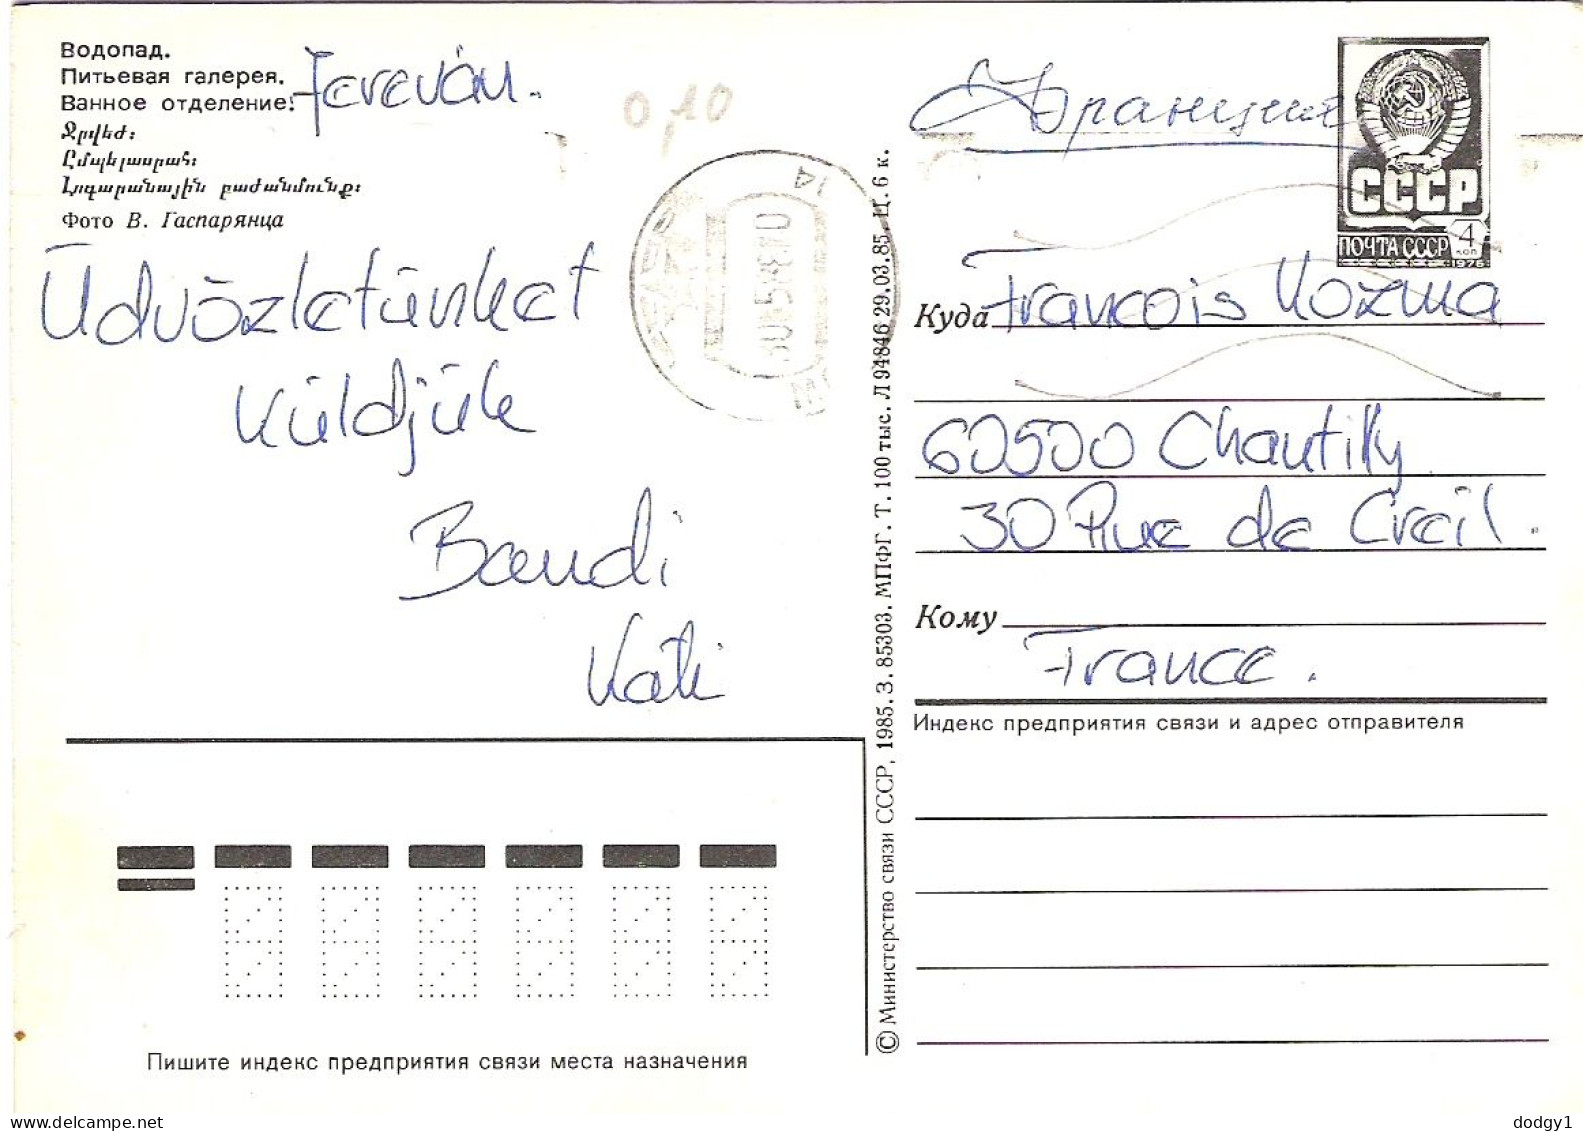 Водопад.
Питьевая галерея.
Ванное отделение.
Ջրվեժ։
Ըմպելասրահ։
Լոգարանային բաժանմունք։
Фото В. Гаспарянца
Jereván.
0,10
Üdvözletünket
küldjük
Bandi
Kati
Франция
СССР
ПОЧТА СССР 4
коп
1976
Куда Francois Kozma
60500 Chantilly
30 Rue de Creil.
Кому
France.
Индекс предприятия связи и адрес отправителя
© Министерство связи СССР, 1985. З. 85303. МПФГ. Т. 100 тыс. Л 94846 29.03.85. Ц. 6 к.
Пишите индекс предприятия связи места назначения
dodgy1